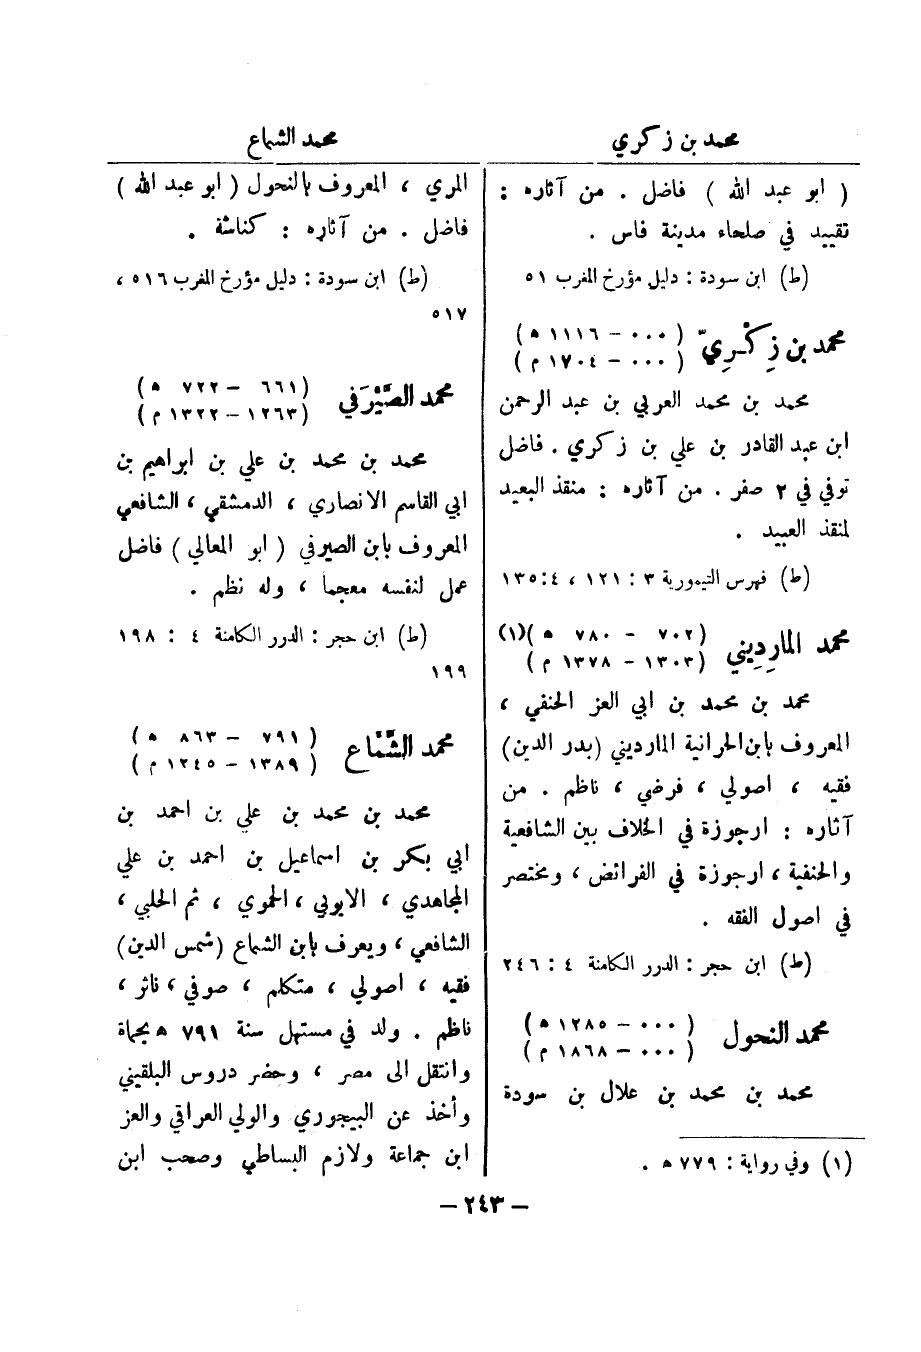 محمد بن زكري
( ابو عبد الله ) فاضل . من آثاره :
تقييد في صلحاء مدينة فاس .
(ط) ابن سودة : دليل مؤرخ المغرب ٥١
محمد بن زِكْرِيّ
( ٠٠٠ – ١١١٦ ه )
( ٠٠٠ – ١٧٠٤ م )
محمد بن محمد العربي بن عبد الرحمن
ابن عبد القادر بن علي بن زكري . فاضل
توفي في ٢ صفر . من آثاره : منقذ البعيد
لمنقذ العبيد .
(ط) فهرس التيمورية ٣ : ١٢١ ، ٤:١٣٥
محمد المارِدِيني
( ٧٠٢ – ٧٨٠ ه )(١)
( ١٣٠٣ – ١٣٧٨ م )
محمد بن محمد بن ابي العز الحنفي ،
المعروف بابن الحرانية المارديني (بدر الدين)
فقيه ، اصولي ، فرضي ، ناظم . من
آثاره : ارجوزة في الخلاف بين الشافعية
والحنفية ، ارجوزة في الفرائض ، ومختصر
في اصول الفقه .
(ط) ابن حجر : الدرر الكامنة ٤ : ٢٤٦
محمد النحول
( ٠٠٠ – ١٢٨٥ ه )
( ٠٠٠ – ١٨٦٨ م )
محمد بن محمد بن علال بن سودة
(١) وفي رواية : ٧٧٩ ه .
محمد الشماع
المري ، المعروف بالنحول ( ابو عبد الله )
فاضل . من آثاره : كناشة .
(ط) ابن سودة : دليل مؤرخ المغرب ٥١٦ ،
٥١٧
محمد الصَّيْرَفي
( ٦٦١ – ٧٢٢ ه )
( ١٢٦٣ – ١٣٢٢ م )
محمد بن محمد بن علي بن ابراهيم بن
ابي القاسم الانصاري ، الدمشقي ، الشافعي
المعروف بابن الصيرفي ( ابو المعالي ) فاضل
عمل لنفسه معجما ، وله نظم .
(ط) ابن حجر : الدرر الكامنة ٤ : ١٩٨
١٩٩
محمد الشَّمَّاع
( ٧٩١ – ٨٦٣ ه )
( ١٣٨٩ – ١٢٤٥ م )
محمد بن محمد بن علي بن احمد بن
أبي بكر بن اسماعيل بن احمد بن علي
المجاهدي ، الايوبي ، الحموي ، ثم الحلبي ،
الشافعي ، ويعرف بابن الشماع (شمس الدين)
فقيه ، اصولي ، متكلم ، صوفي ، ناثر ،
ناظم . ولد في مستهل سنة ٧٩١ ه بحماة
وانتقل الى مصر ، وحضر دروس البلقيني
وأخذ عن البيجوري والولي العراقي والعز
ابن جماعة ولازم البساطي وصحب ابن
– ٢٤٣ –